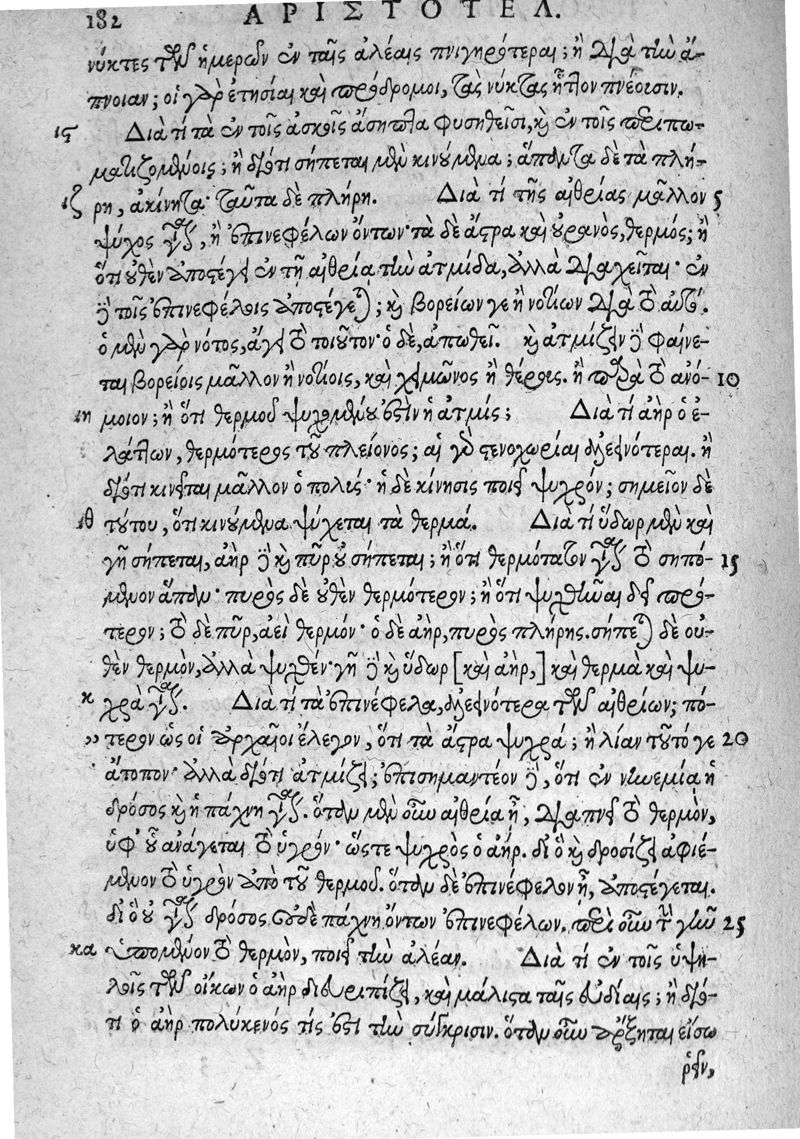 182 ΑΡΙΣΤΟΤΕΛ.
νύκτες τῶν ἡμερῶν ἐν ταῖς ἀλέαις πνιγηρότεραι; ἢ διὰ τὴν ἄ-
πνοιαν; οἱ γὰρ ἐτησίαι καὶ πρόδρομοι, τὰς νύκτας ἧττον πνέουσιν.
ις Διὰ τί τὰ ἐν τοῖς ἀσκοῖς ἄσηπτα φυσηθεῖσι, καὶ ἐν τοῖς περιπω-
ματιζομένοις; ἢ διότι σήπεται μὲν κινούμενα; ἅπαντα δὲ τὰ πλή-
ιζ ρη, ἀκίνητα· ταῦτα δὲ πλήρη. Διὰ τί τῆς αἰθρίας μᾶλλον 5
ψύχος γίνεται, ἢ ἐπινεφέλων ὄντων· τὰ δὲ ἄστρα καὶ οὐρανὸς, θερμός; ἢ
ὅτι οὐθὲν ἀποστέγει ἐν τῇ αἰθρίᾳ τὴν ἀτμίδα, ἀλλὰ διαχεῖται· ἐν
δὲ τοῖς ἐπινεφέλοις ἀποστέγεται; καὶ βορείων γε ἢ νοτίων διὰ τὸ αὐτό.
ὁ μὲν γὰρ νότος, ἄγει τὸ τοιοῦτον· ὁ δὲ, ἀπωθεῖ. καὶ ἀτμίζειν δὲ φαίνε-
ται βορείοις μᾶλλον ἢ νοτίοις, καὶ χειμῶνος ἢ θέρους. ἢ παρὰ τὸ ἀνό- 10
ιη μοιον; ἢ ὅτι θερμοῦ ψυχομένου ἐστὶν ἡ ἀτμίς; Διὰ τί ἀὴρ ὁ ἐ-
λάττων, θερμότερος τοῦ πλείονος; αἱ γὰρ στενοχωρίαι ἀλεεινότεραι. ἢ
διότι κινεῖται μᾶλλον ὁ πολύς· ἡ δὲ κίνησις ποιεῖ ψυχρόν; σημεῖον δὲ
ιθ τούτου, ὅτι κινούμενα ψύχεται τὰ θερμά. Διὰ τί ὕδωρ μὲν καὶ
γῆ σήπεται, ἀὴρ δὲ καὶ πῦρ οὐ σήπεται; ἢ ὅτι θερμότατον γίνεται τὸ σηπό- 15
μενον ἅπαν· πυρὸς δὲ οὐθὲν θερμότερον; ἢ ὅτι ψυχθῆναι δεῖ πρό-
τερον; τὸ δὲ πῦρ, ἀεὶ θερμόν· ὁ δὲ ἀὴρ, πυρὸς πλήρης. σήπεται δὲ οὐ-
θὲν θερμὸν, ἀλλὰ ψυχθέν· γῆ δὲ καὶ ὕδωρ [καὶ ἀὴρ,] καὶ θερμὰ καὶ ψυ-
κ χρὰ γίνεται. Διὰ τί τὰ ἐπινέφελα, ἀλεεινότερα τῶν αἰθρίων; πό-
,, τερον ὡς οἱ ἀρχαῖοι ἔλεγον, ὅτι τὰ ἄστρα ψυχρά; ἢ λίαν τοῦτό γε 20
ἄτοπον· ἀλλὰ διότι ἀτμίζει; ἐπισημαντέον δὲ, ὅτι ἐν νηνεμίᾳ ἡ
δρόσος καὶ ἡ πάχνη γίνεται. ὅταν μὲν οὖν αἰθρία ᾖ, διαπνεῖ τὸ θερμὸν,
ὑφ' οὗ ἀνάγεται τὸ ὑγρόν· ὥστε ψυχρὸς ὁ ἀήρ. διὸ καὶ δροσίζει ἀφιέ-
μενον τὸ ὑγρὸν ἀπὸ τοῦ θερμοῦ. ὅταν δὲ ἐπινέφελον ᾖ, ἀποστέγεται.
διὸ οὐ γίνεται δρόσος οὐδὲ πάχνη ὄντων ἐπινεφέλων. περὶ οὖν τὴν γῆν 25
κα ὑπομένον τὸ θερμὸν, ποιεῖ τὴν ἀλέαν. Διὰ τί ἐν τοῖς ὑψη-
λοῖς τῶν οἴκων ὁ ἀὴρ διευριπίζει, καὶ μάλιστα ταῖς εὐδίαις; ἢ διό-
τι ὁ ἀὴρ πολύκενός τίς ἐστι τὴν σύγκρισιν. ὅταν οὖν ἄρξηται εἴσω
ῥεῖν,